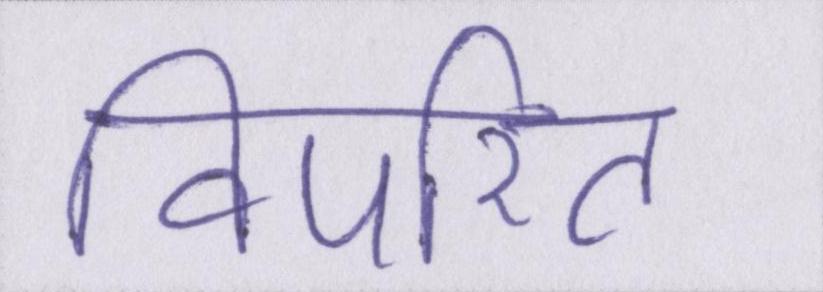 विपरित